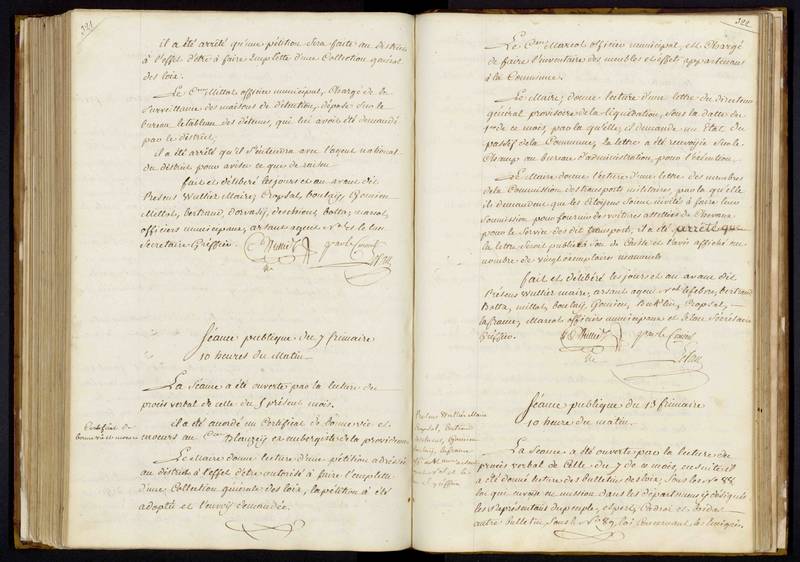 321
il a été arrêté qu'une pétition sera faite au district
à l'effet d'être à faire l'emplette d'une Collection général
des loix.
Le Cen Millot officier municipal, Chargé de la
Surveillance des maisons de détention, dépose sur le
bureau le tableau des détenus, qui lui avoit été demandé
par le district,
il a été arrêté qu'il s'entendra avec l'agent national
du district pour aviser ce que de raison
fait et délibéré les jours et an avant dit
Présens Wuttier Maire, Cropsal, boulay, Gomien
Millot, bertrand, botta, marcol,
officiers municipaux, arsant agent Nal et le
Secrétaire Greffier.
par le Conseil
Séance publique du 7 frimaire
10 heures du Matin
La Séance a été ouverte par la lecture du
procès verbal de celle du 5 présent mois.
Certificat de
bonne vie et moeurs
il a été accordé un Certificat de bonne vie et
moeurs au Cen aubergiste de la providence
Le Maire donne lecture d'une pétition adressée
au district à l'effet d'être autorisé à faire l'emplette
d'une Collection générale des loix, la pétition a été
adoptée et l'envoy demandée.
322
Le Cen Marcol officier municipal, est Chargé
de faire l'inventaire des meubles et effets appartenans
à la Commune.
Le Maire, donne lecture d'une lettre du directeur
général provisoire de la liquidation, sous la datte du
1er de ce mois, par laquelle, il demande un Etat du
passif de la Commune, la lettre a été renvoyée sur le
Champ au bureau d'administration, pour l'exécution.
Le Maire donne lecture d'une lettre des membres
de la Commission des transports militaires, par laquelle
ils demandent que les Citoyens soient invités à faire leur
Soumission pour fournir des voitures attelées de Chevaux
pour le Service des dit transports, il a été arrêté que
la lettre seroit publiée à son de Caisse et l'avis affiché au
nombre de vingt exemplaires manuels
fait et délibéré les jours et an avant dit
Présens Wuttier maire, arsant agent Nal lefebvre, bertrand
Botta, millot, boulay, Gomien, Cropsal,
lafrance, Marcol officiers municipaux et Secrétaire
Greffier.
par le Conseil
Séance publique du 13 frimaire
10 heure du matin.
Présens Wuttier Maire
Cropsal, bertrand
Gomien
boulay, lafrance
Nal et le
greffier
La Séance a été ouverte par la lecture du
procès verbal de Celle du 7 de ce mois, ensuite il
a été donné lecture des bulletin des loix, sous les No 88
loi que envoie en mission dans les départemens y désignés
les Représentans du peuple,
autre bulletin, sous le No 89, loi concernant les